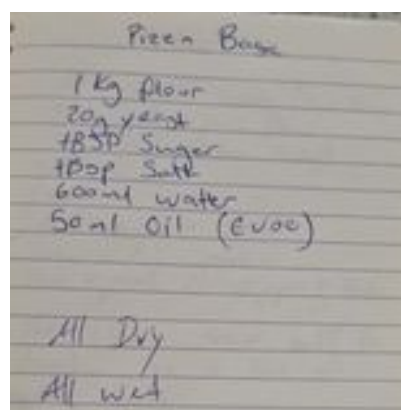 Pizza Base
1 Kg flour
20g yeast
tBSP Suger
tBsp Salt
600ml water
50ml Oil (EVOO)
All Dry
All wet